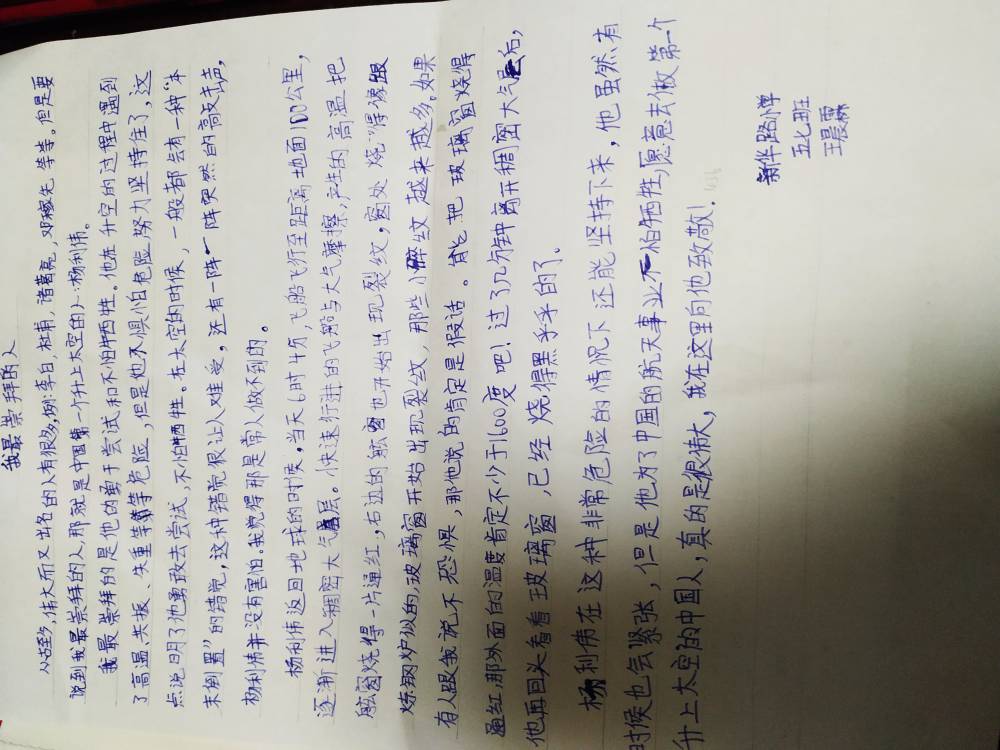 我最崇拜的人
从古至今,伟大而又出名的人有很多,例:李白,杜甫,诸葛亮,邓稼先等等。但是要
说到我最崇拜的人,那就是中国第一个升上太空的人:杨利伟。
我最崇拜的是他的勇于尝试和不怕牺牲。他在升空的过程中遇到
了高温、共振、失重等等危险,但是他不惧怕危险努力坚持住了,这
点说明了他勇敢去尝试,不怕牺牲。在太空的时候,一般都会有一种“本
末倒置”的错觉,这种错觉很让人难受,还有一阵一阵突然的敲击声,
杨利伟并没有害怕。我觉得那是常人做不到的。
杨利伟返回地球的时候,当天6时4分,飞船飞行至距离地面100公里,
逐渐进入稠密大气层。快速行进的飞船与大气摩擦,产生的高温把
舷窗烧得一片通红,右边的舷窗也开始出现裂纹,窗外烧得像跟
炼钢炉似的,玻璃窗开始出现裂纹,那些小碎纹越来越多。如果
有人跟我说不恐惧,那他说的肯定是假话。能把玻璃窗烧得
通红,那外面的温度肯定不少于1600度吧!过了几分钟离开稠密大气层后,
他再回头看看玻璃窗,已经烧得黑乎乎的了。
杨利伟在这种非常危险的情况下还能坚持下来,他虽然有
时候也会紧张,但是他为了中国的航天事业不怕牺牲,愿意去做第一个
升上太空的中国人,真的是很伟大,我在这里向他致敬!
新华路小学
五七班
王晨霖